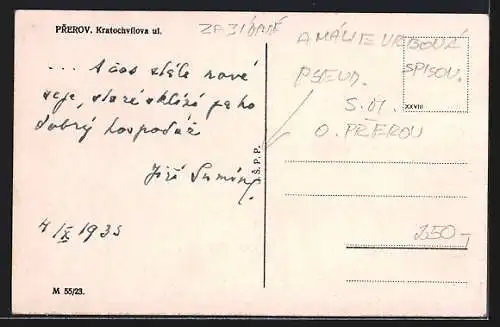 PŘEROV. Kratochvílova ul.
... A čas stále nové
seje, staré sklízí jako
dobrý hospodář
Jiří Sumín
4/IX 1935
M 55/23.
AMÁLIE VRBOVÁ
SPISOV.
PSEUD.
S.M.
O. PŘEROV
XXVIII
Š. P. P.
250-